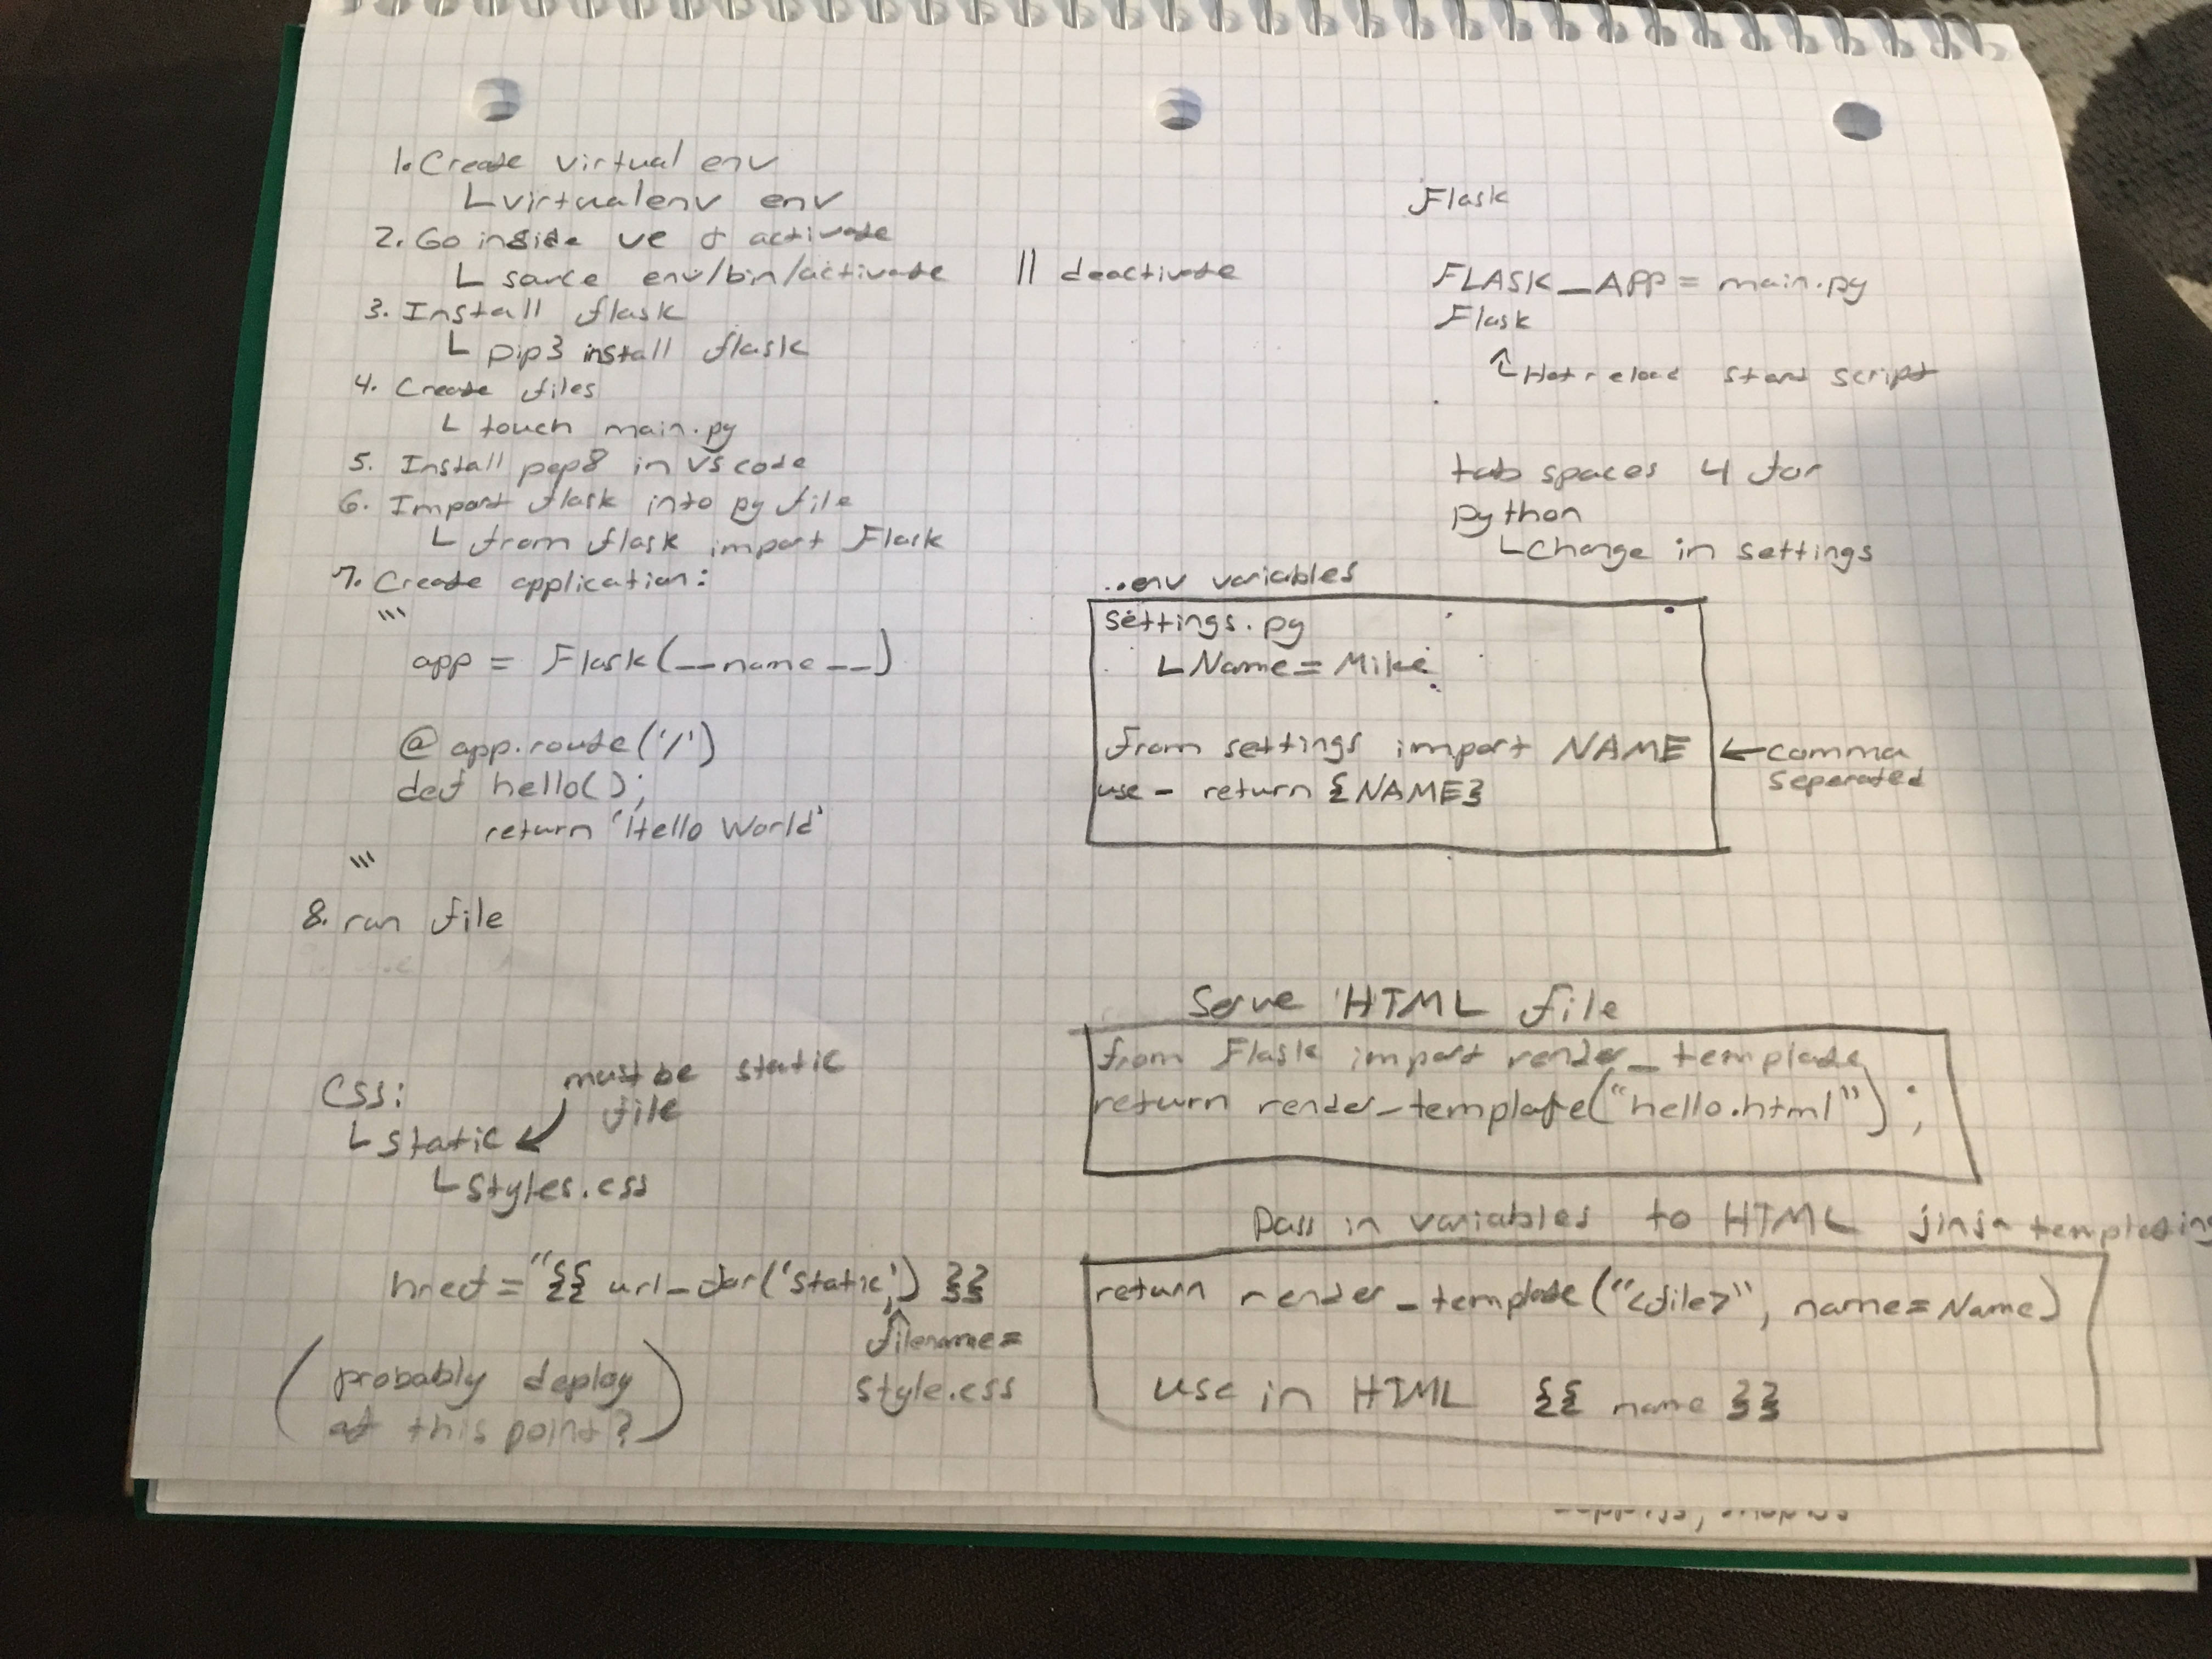 1. Create virtual env
└ virtualenv env
2. Go inside ve & activate
└ source env/bin/activate || deactivate
3. Install flask
└ pip3 install flask
4. Create files
└ touch main.py
5. Install pep8 in vs code
6. Import flask into py file
└ from flask import Flask
7. Create application:
"""
app = Flask(__name__)
@app.route('/')
def hello():
return 'Hello World'
"""
8. run file
CSS: must be static
└ static file
└ styles.css
href = "{{ url_for('static',) }}
filename=
style.css
(probably deploy
at this point?)
Flask
FLASK_APP = main.py
Flask
Hot reload start script
tab spaces 4 for
python
└ change in settings
..env variables
settings.py
└ Name = Mike
from settings import NAME ← comma
seperated
use - return {NAME}
Serve HTML file
from Flask import render_template
return render_template("hello.html");
Pass in variables to HTML jinja templating
return render_template("<file>", name=Name)
use in HTML {{ name }}